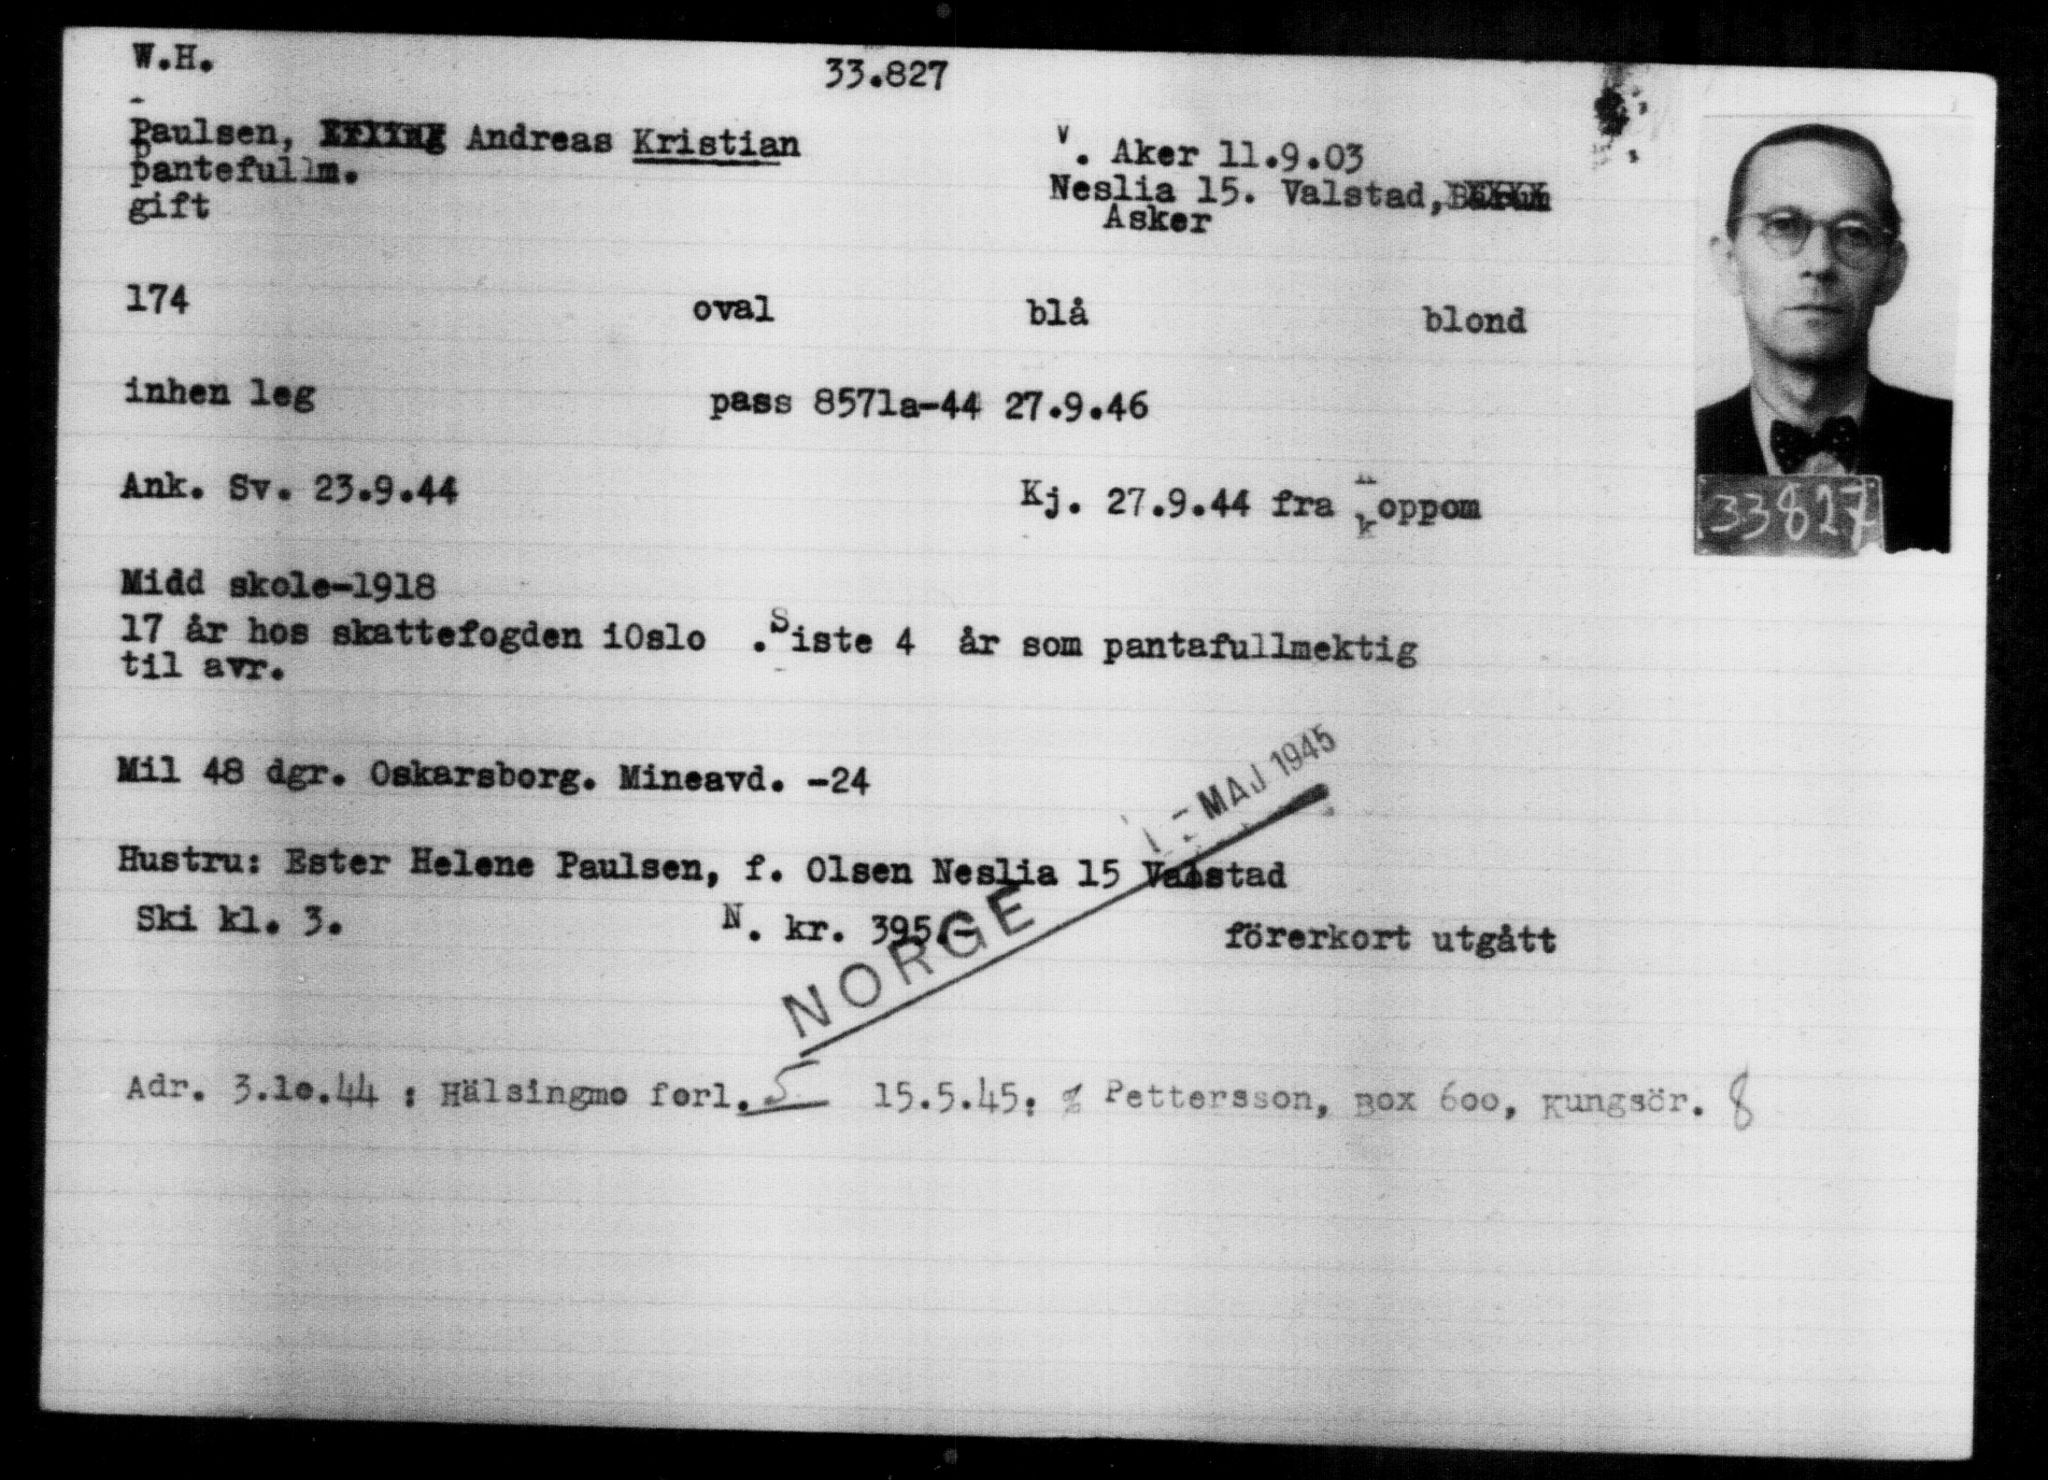 W.H.
33.827
Paulsen, Andreas Kristian
v. Aker 11.9.03
pantefullm.
Neslia 15. Valstad,
gift
Asker
174 oval blå blond
inhen leg pass 8571a-44 27.9.46
Ank. Sv. 23.9.44 Kj. 27.9.44 fra koppom
33827
Midd skole-1918
17 år hos skattefogden iOslo . Siste 4 år som pantafullmektig
til avr.
Mil 48 dgr. Oskarsborg. Mineavd. -24
MAJ 1945
Hustru: Ester Helene Paulsen, f. Olsen Neslia 15 Valstad
Ski kl. 3. N. kr. 395.- förerkort utgått
NORGE
Adr. 3.10.44 : Hälsingmo forl. 5 15.5.45: % Pettersson, Box 600, Kungsör. 8